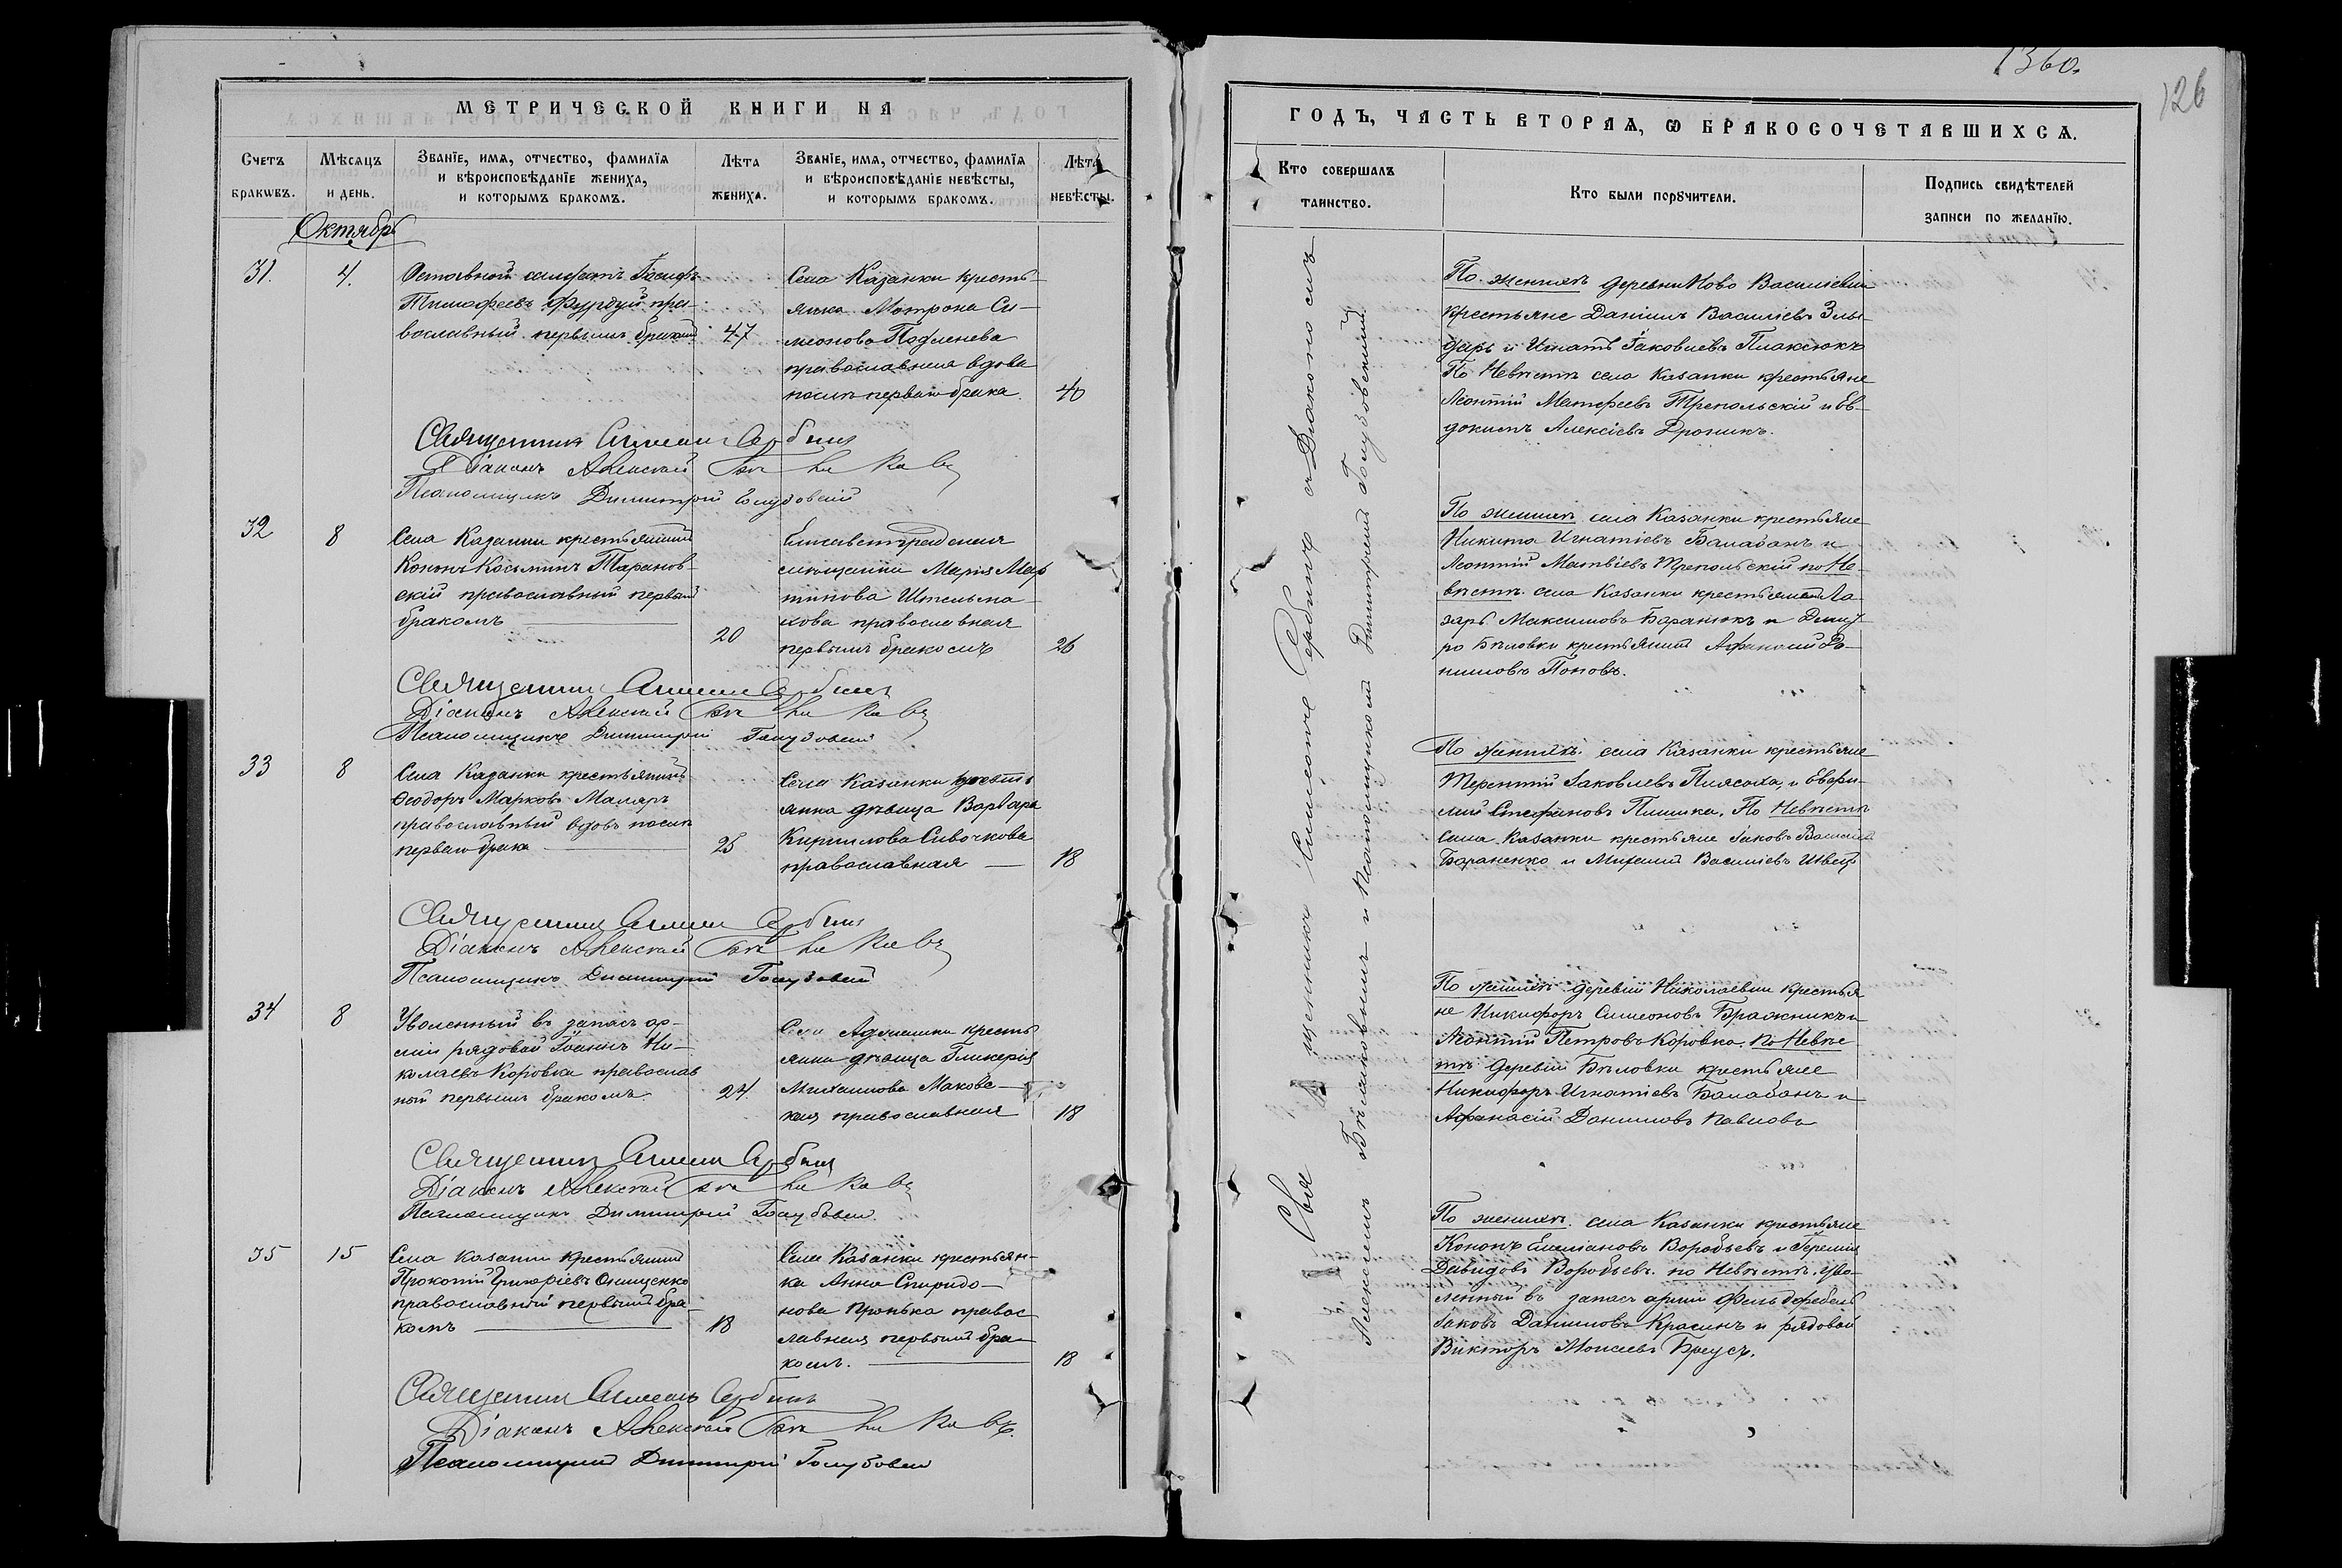 МЕТРИЧЕСКОЙ КНИГИ НА
Счетъ браковъ.
Мѣсяцъ и день.
Званїе, имя, отчество, фамилїя и вѣроисповѣданїе жениха, и которымъ бракомъ.
Лѣта жениха.
Званїе, имя, отчество, фамилїя и вѣроисповѣданїе невѣсты, и которымъ бракомъ.
Лѣта невѣсты.
Октябрь
31.
4.
Тимофеевъ Фурдуй пра-
вославный первымъ бракомъ
47
Села Казанки кресть-
янка Матрона Си-
меонова
православная вдова
послѣ перваго брака
40
Священникъ Симеонъ Сербинъ
Діаконъ Алексѣй
Псаломщикъ Димитрій Голубовскій
32
8
Села Казанки крестьянинъ
Кононъ Косьминъ Таранов-
скій православный первымъ
бракомъ
20
Елисаветградская
мѣщанка Марія Мар
тинова Штельма-
хова православная
первымъ бракомъ
26
Священникъ Симеонъ Сербинъ
Діаконъ Алексѣй
Псаломщикъ Димитрій Голубовскій
33
8
Села Казанки крестьянинъ
Ѳеодоръ Марковъ Маляръ
православный вдовъ послѣ
перваго брака
25
Села Казанки кресть
янка дѣвица Варвара
Кирилова Сивочкова
православная
18
Священникъ Симеонъ Сербинъ
Діаконъ Алексѣй
Псаломщикъ Димитрій Голубовскій
34
8
Уволенный въ запасъ ар-
міи рядовой Іоаннъ Ни-
колаевъ Коровка православ
ный первымъ бракомъ.
24.
Села кресть
янка дѣвица Гликерія
Михаилова Маковс-
кая православная
18
Священникъ Симеонъ Сербинъ
Діаконъ Алексѣй
Псаломщикъ Димитрій Голубовскій
35
15
Села Казанки крестьянинъ
Прокопій Григоріевъ Онищенко
православный первымъ бра-
комъ
18
Села Казанки крестьян-
ка Анна Спиридо-
нова Пронька правос
лавная первымъ бра-
комъ.
18
Священникъ Симеонъ Сербинъ
Діаконъ Алексѣй
Псаломщикъ Димитрій Голубовскій
1360.
126
ГОДЪ, ЧАСТЬ ВТОРАЯ, Ѡ БРАКОСОЧЕТАВШИХСЯ.
Кто совершалъ таинство.
Кто были поручители.
Подпись свидѣтелей записи по желанїю.
Священникъ Симеонъ Сербинъ съ Діакономъ
Алексѣемъ Бѣлаковымъ и Псаломщикомъ Димитріемъ Голубовскимъ
По женихѣ деревни Ново Василіевки
крестьяне Даніилъ Василіевъ Злы-
дарь и Игнатъ Іаковлевъ Плаксюкъ
По Невѣстѣ села Казанки крестьяне
Леонтій Матфеевъ Трепольскій и Ев-
докимъ Алексіевъ Дроникъ.
По женихѣ села Казанки крестьяне
Никита Игнатіевъ Балабанъ и
Леонтій Матвіевъ Трепольскій по Не-
вѣстѣ села Казанки крестьянинъ Ла-
зарь Максимовъ Баранюкъ и
Бѣловки крестьянинъ Афанасій Да-
ниловъ Поповъ.
По женихѣ села Казанки крестьяне
Терентій Іаковлевъ Плясоха, и Евфи-
мій Стефановъ Плишка. По Невѣстѣ
села Казанки крестьяне Іаковъ
Бараненко и Михаилъ Василіевъ Швецъ
По женихѣ деревни Николаевки крестья
не Никифоръ Симеоновъ Бражникъ и
Леонтій Петровъ Коровка. По Невѣс
тѣ деревни Бѣловки крестьяне
Никифоръ Игнатіевъ Балабанъ и
Афанасій Даниловъ Павловъ
По женихѣ села Казанки крестьяне
Кононъ Емеліановъ Воробьевъ и Іеремія
Давидовъ Воробьевъ. по Невѣстѣ. Уво-
ленный въ запасъ арміи Фельдфебель
Іаковъ Даниловъ Красинъ и рядовой
Викторъ Моисеевъ Бреусъ.